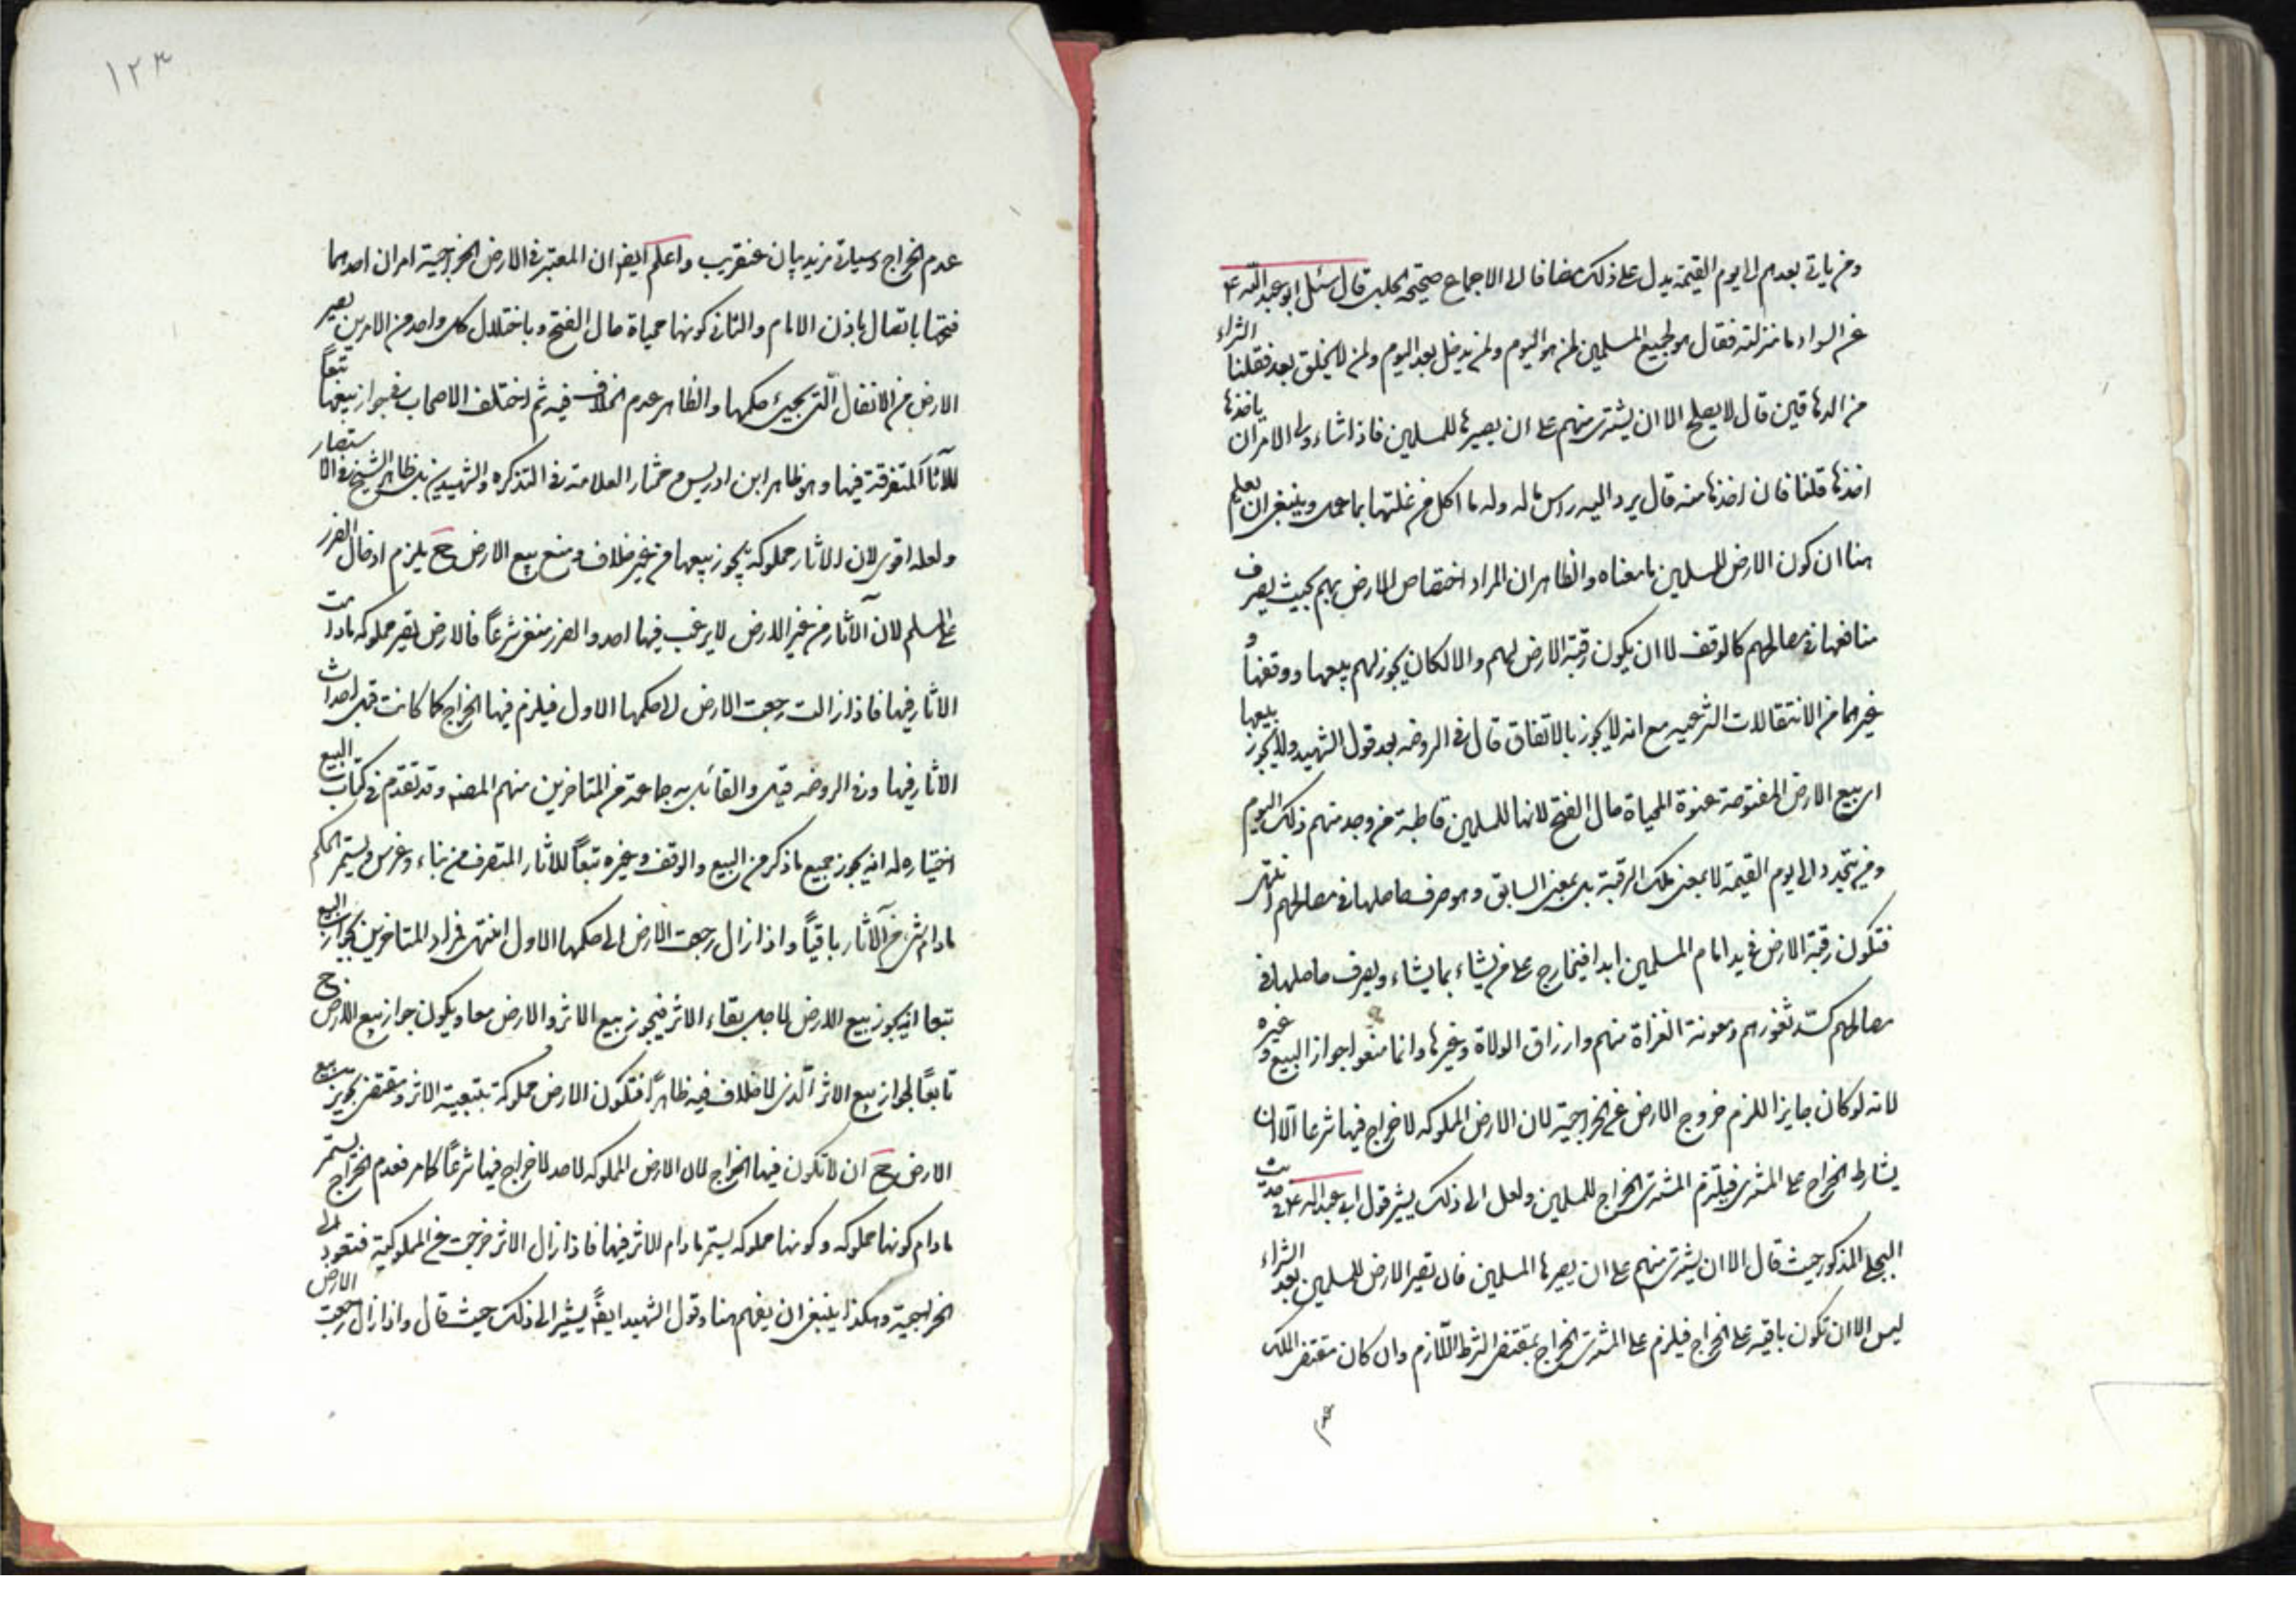 ومن ياتى بعدهم الى يوم القيمة يدل على ذلك مضافا الى الاجماع صحيحة الحلبى قال سئل ابو عبد الله ع
عن السواد ما منزلته فقال هو لجميع المسلمين لمن هو اليوم ولمن يدخل بعد اليوم ولمن لا يخلق بعد فقلنا الشراء
من الدهاقين قال لا يصلح الا ان يشترى منهم على ان يصيرها للمسلمين فاذا شاء ولى الامر ان ياخذها
اخذها قلنا فان اخذها منه قال يرد اليه راس ماله وله ما اكل من غلتها بما عمل وينبغى ان يعلم
هنا ان كون الارض للمسلمين ما معناه والظاهر ان المراد اختصاص الارض بهم بحيث يصرف
منافعها فى مصالحهم كالوقف لا ان يكون رقبة الارض لهم والا لكان يجوز لهم بيعها ووقفها و
غيرهما من الانتقالات الشرعيه مع انه لا يجوز بالاتفاق قال فى الروضه بعد قول الشهيد ولا يجوز بيعها
اى بيع الارض المفتوحة عنوة المحياة حال الفتح لانها للمسلمين قاطبة من وجد منهم ذلك اليوم
ومن يتجدد الى يوم القيمة لا بمعنى ملك الرقبة بل بمعنى السابق وهو صرف حاصلها فى مصالحهم انتهى
فتكون رقبة الارض فى يد امام المسلمين ابدا فيخارج على من يشاء بما يشاء ويصرف حاصلها فى
مصالحهم كسد ثغورهم ومعونة الغزاة منهم وارزاق الولاة وغيرها وانما منعوا جواز البيع و غيره
لانه لو كان جايزا للزم خروج الارض عن الخراجية لان الارض المملوكه لا خراج فيها شرعا الا ان
يشارط الخراج على المشترى فيلتزم المشترى الخراج للمسلمين ولعل الى ذلك يشير قول ابى عبد الله ع فى حديث
المذكور حيث قال الا ان يشترى منهم على ان يصيرها المسلمين فان تصير الارض للمسلمين بعد الشراء
ليس الا ان تكون باقيه على الخراج فيلزم على المشترى الخراج بمقتضى الشرط اللازم وان كان مقتضى الملك
عدم
١٢٣
عدم الخراج وسياتى مزيد بيان عنقريب واعلم ايضا ان المعتبر فى الارض الخراجية امران احدهما
فتحها بالقتال باذن الامام والثانى كونها محياة حال الفتح وباختلال كل واحد من الامرين يصير
الارض من الانفال التى يجئ حكمها والظاهر عدم الخلاف فيه ثم اختلف الاصحاب فى جواز بيعها تبعاً
للآثار المتفرقة فيها وهو ظاهر ابن ادريس ومختار العلامة فى التذكره والشهيدين بل ظاهر الشيخ فى الاستبصار
ولعله اقوى لان الاثار مملوكه يجوز بيعها من غير خلاف ومنع بيع الارض ح يلزم ادخال الضرر
على المسلم لان الآثار من غير الارض لا يرغب فيها احد والضرر منفى شرعاً فالارض تصير مملوكه مادامت
الاثار فيها فاذا زالت رجعت الارض لاحكمها الاول فيلزم فيها الخراج كما كانت قبل احداث
الاثار فيها وفى الروضه قيل والقائل به جماعة من المتاخرين منهم المصنف وقد تقدم فى كتاب البيع
اختياره له انه يجوز جميع ما ذكر من البيع والوقف وغيره تبعاً للاثار المتصرف من بناء وغرس ويستمر الحكم
مادام شئ من الآثار باقياً واذا زال رجعت الارض الى حكمها الاول انتهى فمراد المتاخرين بجواز البيع
تبعا انه يجوز بيع الارض لاجل بقاء الاثر فيجوز بيع الاثر والارض معا ويكون جواز بيع الارض ح
تابعاً لجواز بيع الاثر الذى لا خلاف فيه ظاهراً فتكون الارض مملوكة بتبعية الاثر ومقتضى تجويز بيع
الارض ح ان لا تكون فيها الخراج لان الارض المملوكه لاحد لا خراج فيها شرعاً كما مر فعدم الخراج يستمر
مادام كونها مملوكه وكونها مملوكه يستمر مادام الاثر فيها فاذا زال الاثر خرجت عن المملوكية فتعود الى
الخراجية وهكذا ينبغى ان يفهم هنا وقول الشهيد ايضاً يشير الى ذلك حيث قال واذا زال رجعت الارض